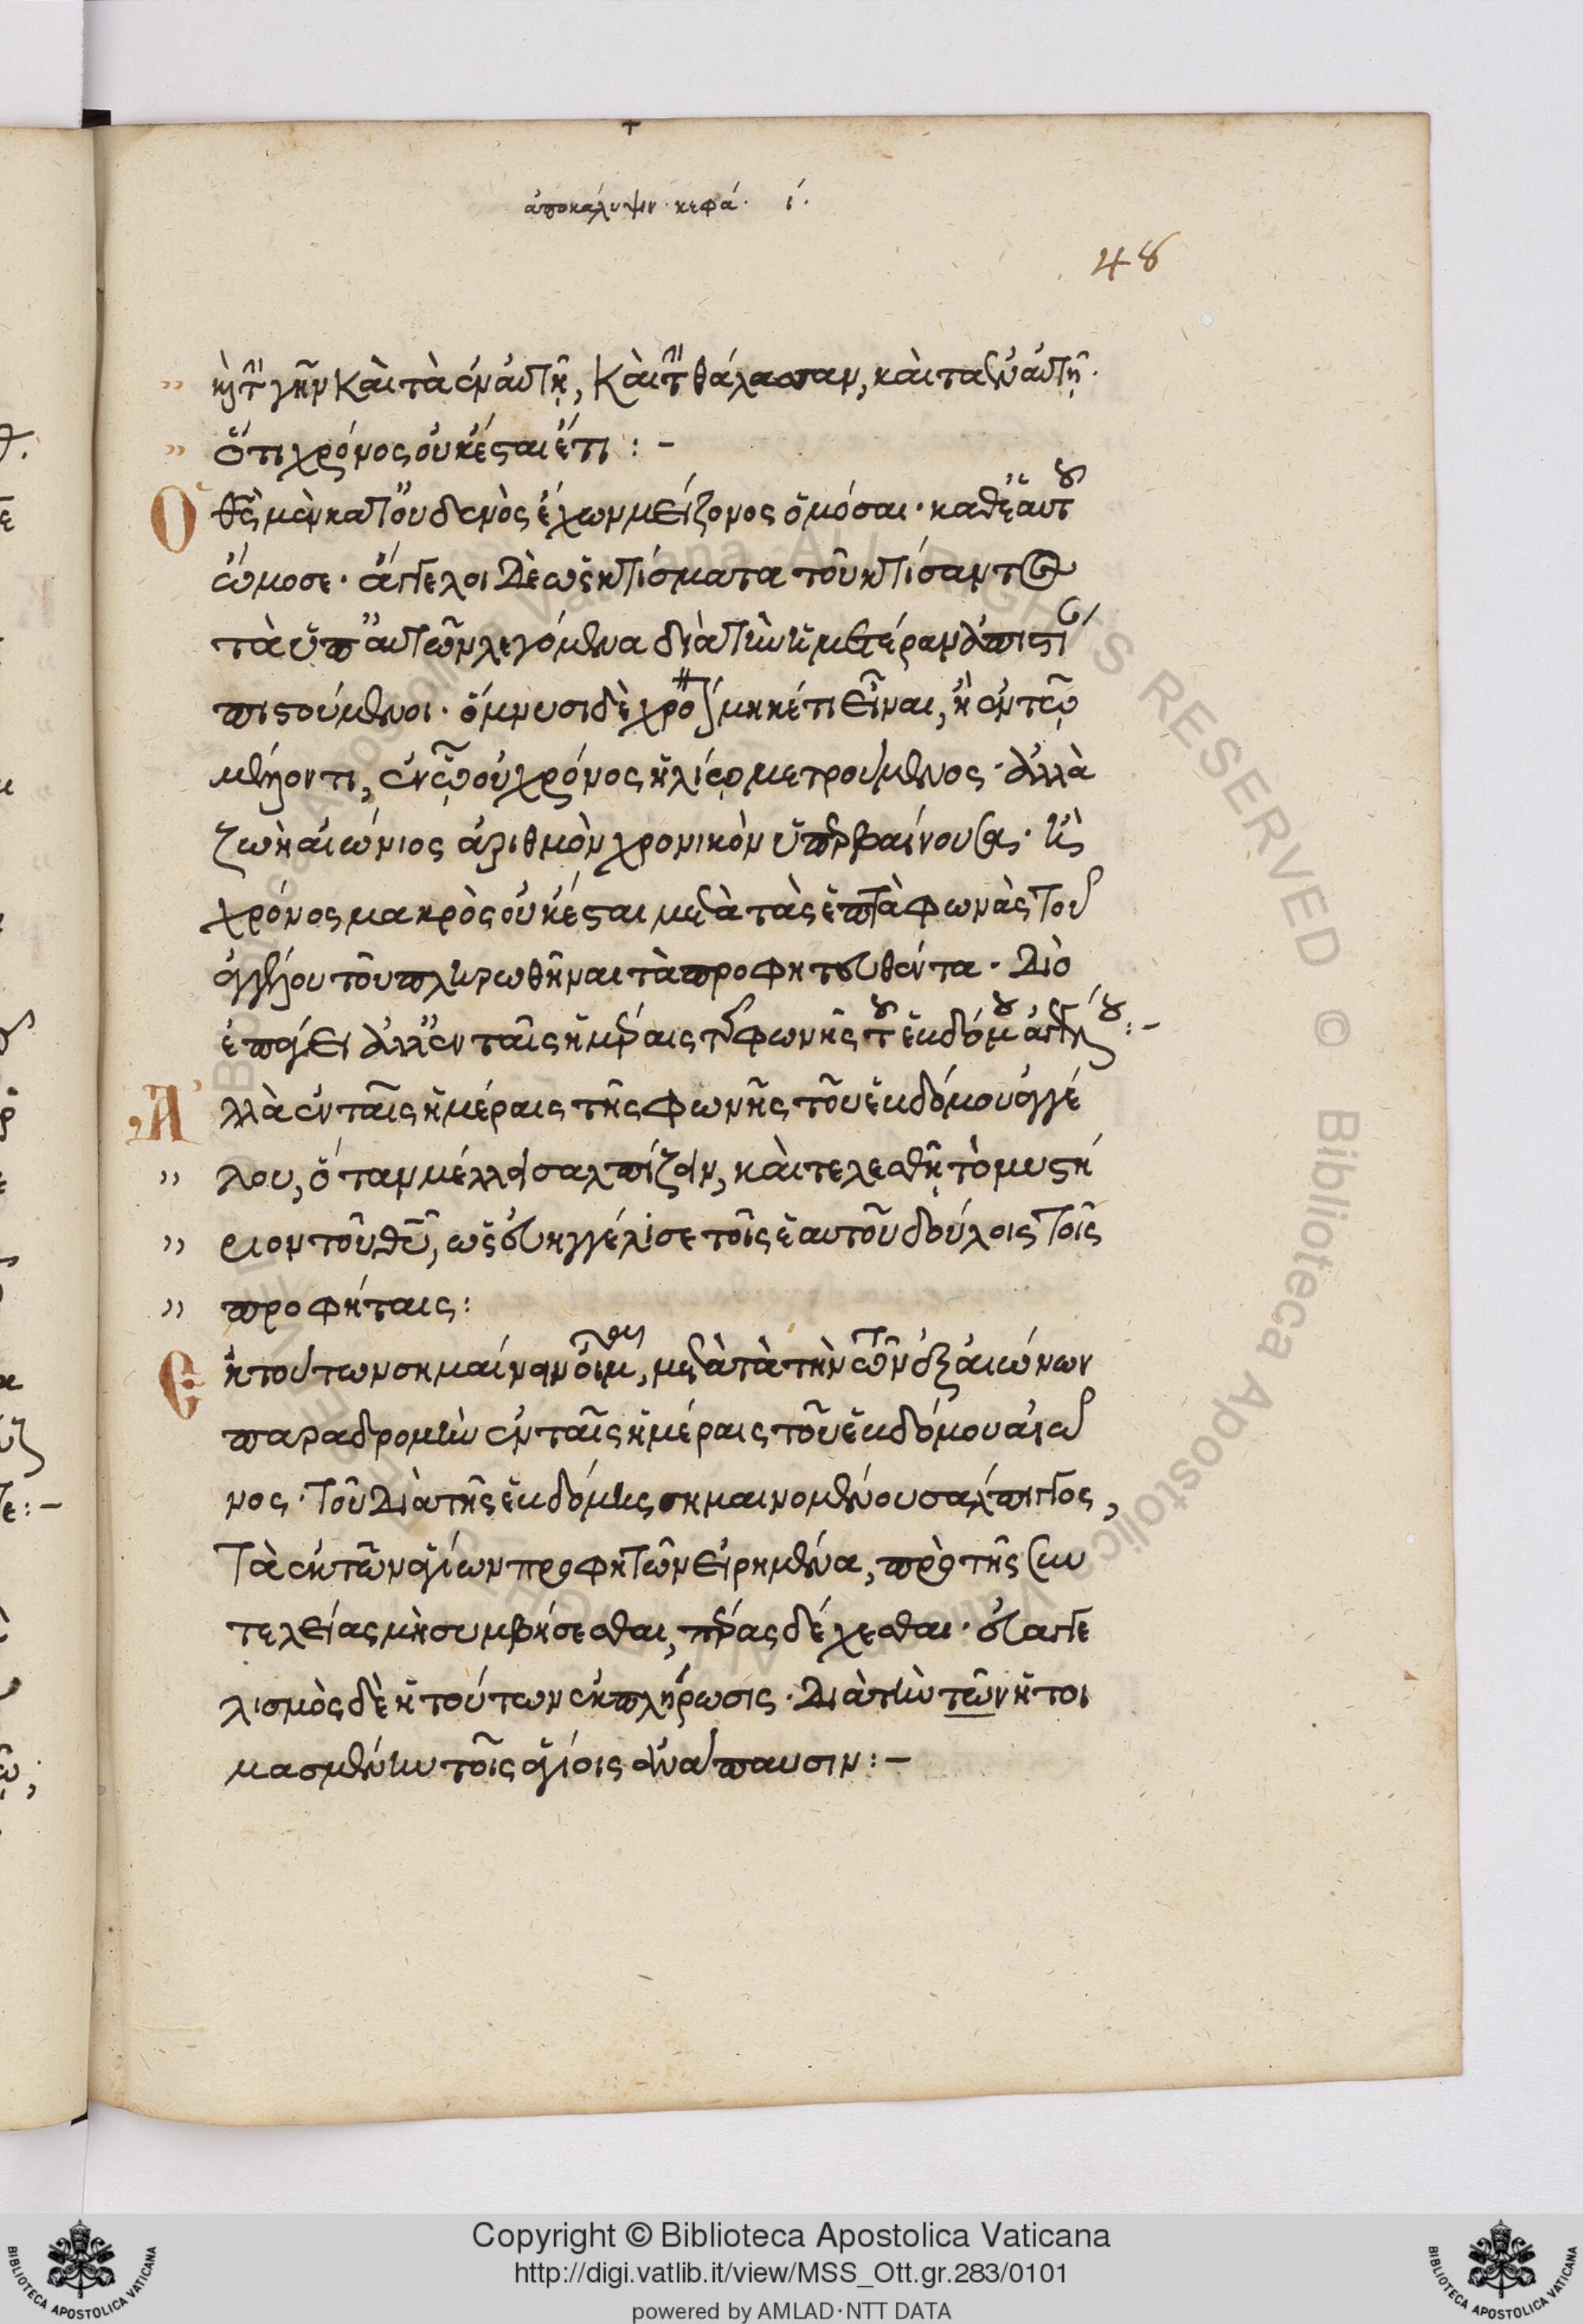 ἀποκάλυψιν· κεφά. ί.
48
κ̀ τ̀ γῆν καὶ τὰ ἐν ἀυτῆ, καὶ τ̀ θάλασσαν, καὶ τὰ ἐν ἀυτῆ.
ὅτι χρόνος οὐκέσται ἔτι :-
Ὁ θς̀ μὲν κατ' οὐδενὸς ἔχων μείζονος ὀμόσαι· καθ' ἑαυτοῦ
ὤμοσε· ἄγγελοι δὲ ὡς κτίσματα τοῦ κτίσαντος
τὰ ὑπ' αυτῶν λεγόμενα διὰ τὴν ἡμετέραν ἀπιστί
πιστούμενοι· ὄμνυσι δὲ χρόνον μηκέτι εἶναι, ἢ ἐν τῷ
μέλλοντι, ἐν ᾧ οὐ χρόνος ἡλίῳ μετρούμενος· ἀλλὰ
ζωὴ αἰώνιος ἀριθμὸν χρονικὸν ὑπερβαίνουσα· ἢ ὡς
χρόνος μακρὸς οὐκέσται μετὰ τὰς ἑπτὰ φωνὰς τοῦ
ἀγγέλου τοῦ πληρωθῆναι τὰ προφητευθέντα· διὸ
ἐπάγει ἀλλ' ἐν ταῖς ἡμέραις τῆς φωνῆς τοῦ ἑβδόμου ἀγγέλου :-
Ἀλλὰ ἐν ταῖς ἡμέραις τῆς φωνῆς τοῦ ἑβδόμου ἀγγέ
λου, ὅταν μέλλη σαλπίζειν, καὶ τελεσθῆ τὸ μυστή
ριον τοῦ θῦ, ὡς εὐηγγέλισε τοῖς ἑαυτοῦ δούλοις τοῖς
προφήταις :
Ἐκ τούτων σημαίνειν οἶμαι, μετὰ τὰ τὴν τῶν ἓξ αἰώνων
παραδρομὴν ἐν ταῖς ἡμέραις τοῦ ἑβδόμου αἰῶ
νος· τοῦ διὰ τῆς ἑβδόμης σημαινομένου σάλπιγγος,
τὰ ἐκ τῶν ἁγίων προφητῶν εἰρημένα, πρὸ τῆς συν
τελείας μὴ συμβήσεσθαι, πέρας δέχεσθαι· εὐαγγε
λισμὸς δὲ ἡ τούτων ἐκπλήρωσις· διὰ τὴν τῶν ἡτοι
μασμένην τοῖς ἁγίοις ἀνάπαυσιν :-
Copyright © Biblioteca Apostolica Vaticana
http://digi.vatlib.it/view/MSS_Ott.gr.283/0101
powered by AMLAD·NTT DATA